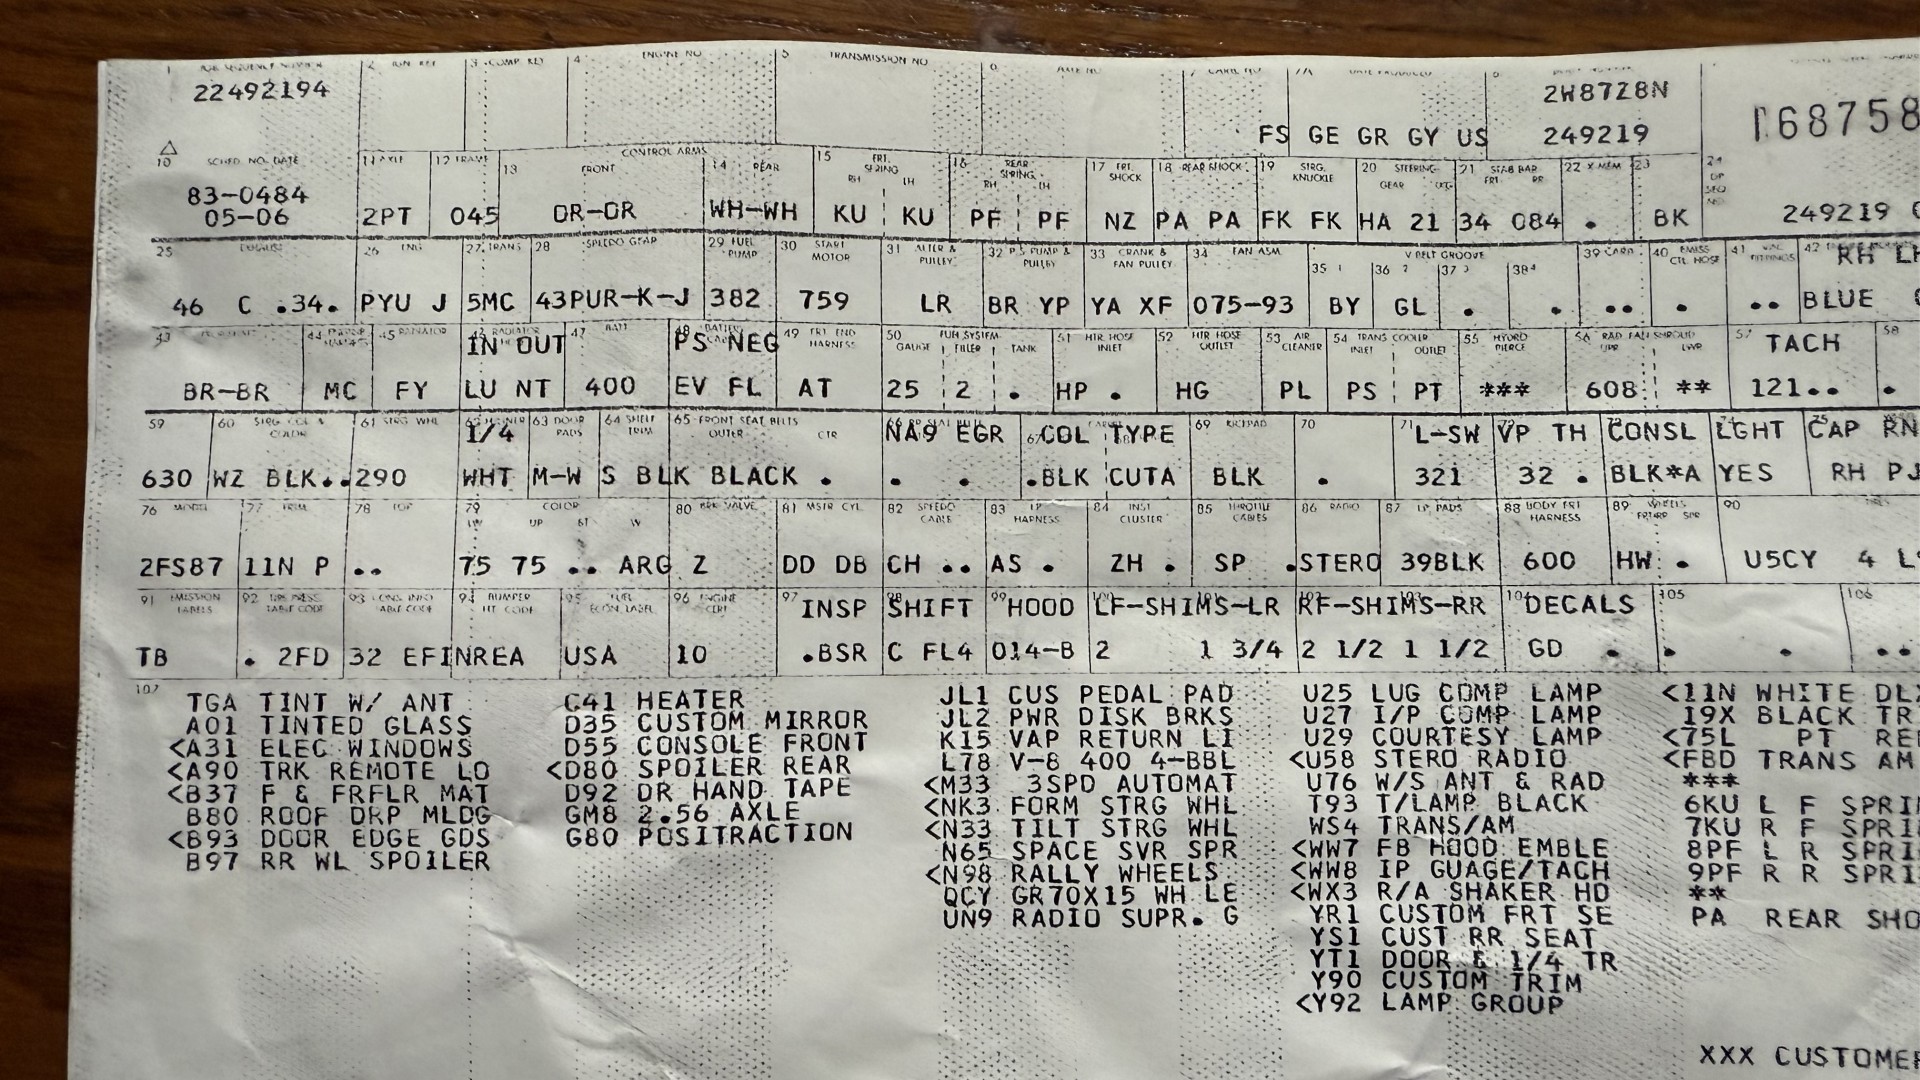 22492194 2W87Z8N 168758
FS GE GR GY US 249219
10 SCHED NO. DATE 11 AXLE 12 FRAME 13 FRONT CONTROL ARMS 14 REAR 15 FRT. SPRING RH LH 16 REAR SPRING RH LH 17 FRT. SHOCK 18 REAR SHOCK 19 STRG. KNUCKLE 20 STEERING GEAR 21 STAB BAR FRT RR 22 X MEM 23 24
83-0484
05-06 2PT 045 OR-OR WH-WH KU KU PF PF NZ PA PA FK FK HA 21 34 084 . BK 249219
25 26 ENG 27 TRANS 28 SPEEDO GEAR 29 FUEL PUMP 30 START MOTOR 31 ALTER & PULLEY 32 P.S PUMP & PULLEY 33 CRANK & FAN PULLEY 34 FAN ASM. V BELT GROOVE 35 1 36 2 37 3 38 4 39 CARB 40 EMISS CTL HOSE 41 42 RH LH
46 C .34. PYU J 5MC 43PUR-K-J 382 759 LR BR YP YA XF 075-93 BY GL . . .. . .. BLUE
43 44 45 RADIATOR IN OUT 47 BATT PS NEG 49 FRT. END HARNESS 50 FUEL SYSTEM GAUGE FILLER TANK 51 HTR HOSE INLET 52 HTR HOSE OUTLET 53 AIR CLEANER 54 TRANS COOLER INLET OUTLET 55 HYBRD PIERCE 56 RAD FAN SHROUD UPR LWR 57 TACH 58
BR-BR MC FY LU NT 400 EV FL AT 25 2 . HP . HG PL PS PT *** 608 ** 121.. .
59 60 STRG COL & COLOR 61 STRG WHL 1/4 63 DOOR PADS 64 SHELF TRIM 65 FRONT SEAT BELTS OUTER CTR NA9 EGR COL TYPE 69 70 71 L-SW VP TH CONSL LGHT CAP RN
630 WZ BLK..290 WHT M-W S BLK BLACK . . . .BLK CUTA BLK . 321 32 . BLK*A YES RH PJ
76 MODEL 77 TRIM 78 TOP 79 COLOR LW UP ST W 80 BRK VALVE 81 MSTR CYL 82 SPEEDO CABLE 83 I.P. HARNESS 84 INST CLUSTER 85 THROTTLE CABLES 86 RADIO 87 I.P. PADS 88 BODY FRT HARNESS 89 WHEELS 90
2FS87 11N P .. 75 75 .. ARG Z DD DB CH .. AS . ZH . SP .STERO 39BLK 600 HW . U5CY 4
91 EMISSION LABELS 92 93 94 BUMPER HT CODE 95 FUEL ECON LABEL 96 ENGINE CERT 97 INSP SHIFT 99 HOOD LF-SHIMS-LR RF-SHIMS-RR 104 DECALS 105 106
TB . 2FD 32 EFINREA USA 10 .BSR C FL4 014-B 2 1 3/4 2 1/2 1 1/2 GD . . . ..
107
TGA TINT W/ ANT C41 HEATER JL1 CUS PEDAL PAD U25 LUG COMP LAMP <11N WHITE DL
A01 TINTED GLASS D35 CUSTOM MIRROR JL2 PWR DISK BRKS U27 I/P COMP LAMP 19X BLACK TR
<A31 ELEC WINDOWS D55 CONSOLE FRONT K15 VAP RETURN LI U29 COURTESY LAMP <75L PT RE
<A90 TRK REMOTE LO <D80 SPOILER REAR L78 V-8 400 4-BBL <U58 STERO RADIO <FBD TRANS AM
<B37 F & FRFLR MAT D92 DR HAND TAPE <M33 3SPD AUTOMAT U76 W/S ANT & RAD ***
B80 ROOF DRP MLDG GM8 2.56 AXLE <NK3 FORM STRG WHL T93 T/LAMP BLACK 6KU L F SPRI
<B93 DOOR EDGE GDS G80 POSITRACTION <N33 TILT STRG WHL WS4 TRANS/AM 7KU R F SPRI
B97 RR WL SPOILER N65 SPACE SVR SPR <WW7 FB HOOD EMBLE 8PF L R SPRI
<N98 RALLY WHEELS <WW8 IP GUAGE/TACH 9PF R R SPRI
QCY GR70X15 WH LE <WX3 R/A SHAKER HD **
UN9 RADIO SUPR. G YR1 CUSTOM FRT SE PA REAR SHO
YS1 CUST RR SEAT
YT1 DOOR & 1/4 TR
Y90 CUSTOM TRIM
<Y92 LAMP GROUP
XXX CUSTOMER